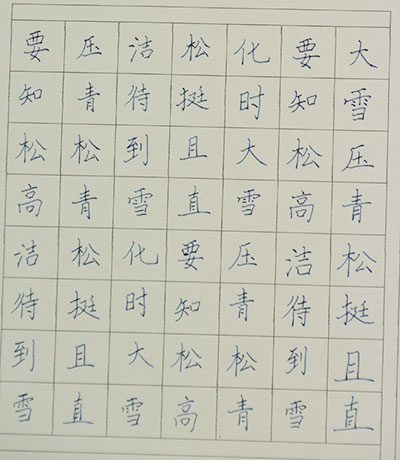 大雪压青松挺且直
要知松高洁待到雪
化时大雪压青松青
松挺且直要知松高
洁待到雪化时大雪
压青松青松挺且直
要知松高洁待到雪